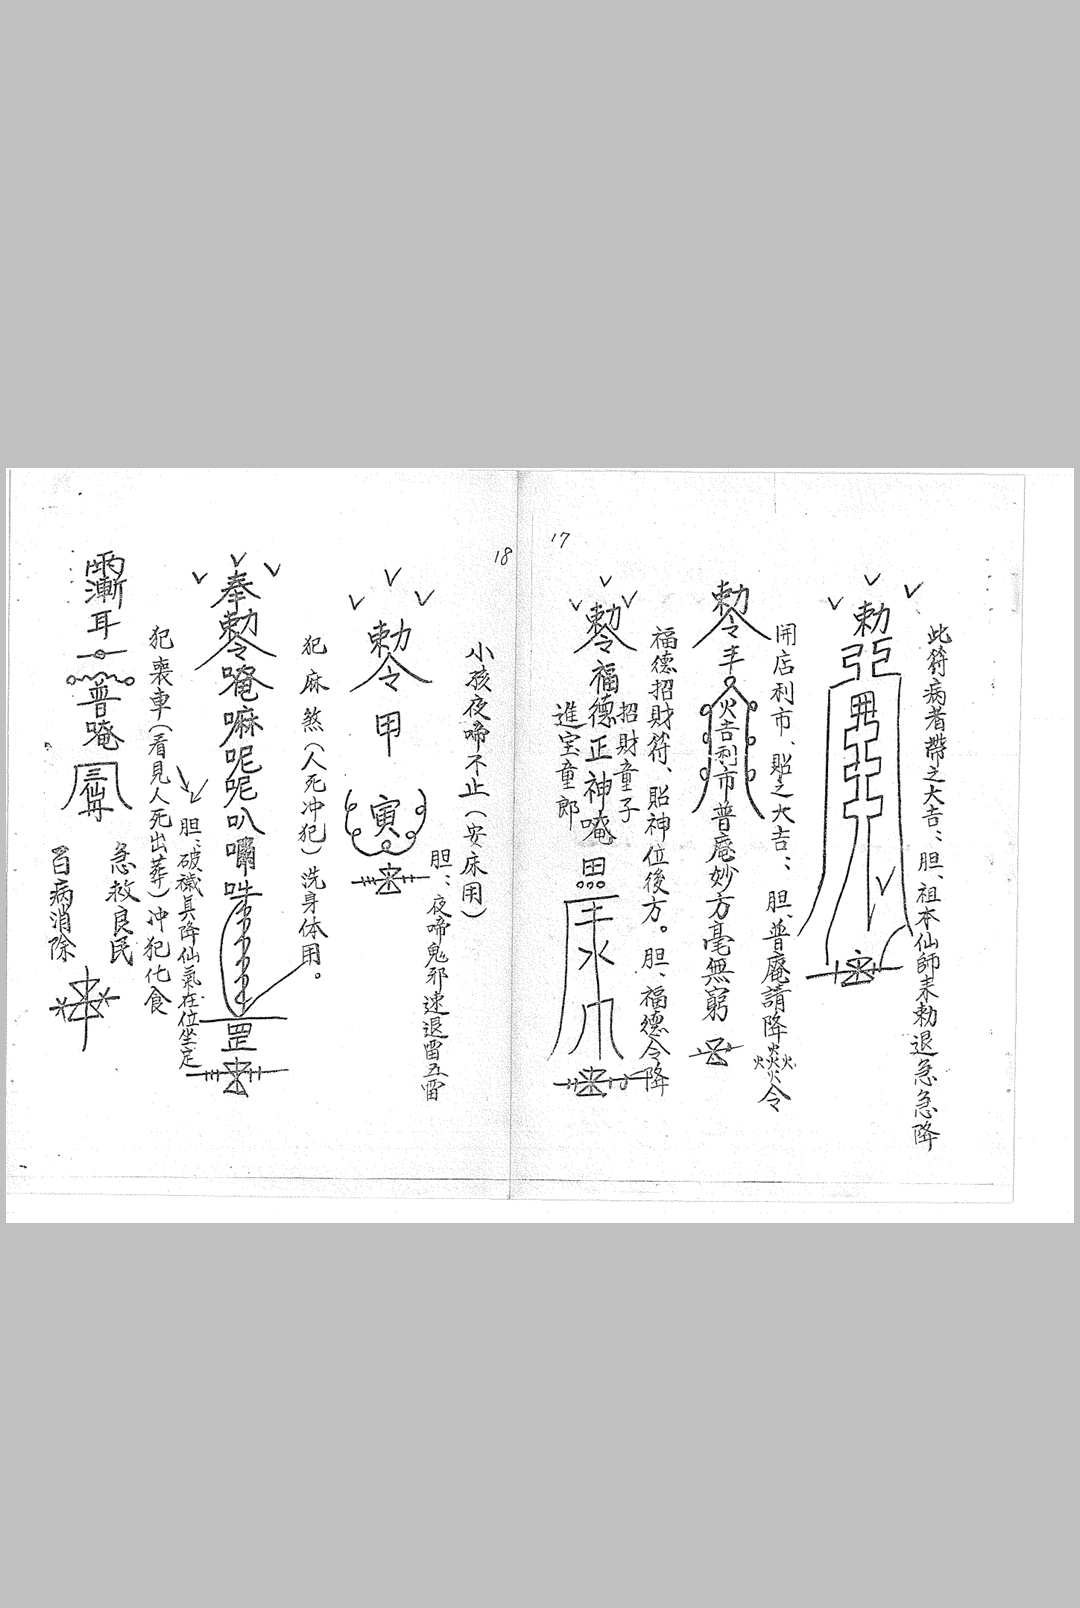 17
此符病者帶之大吉：胆、祖本仙師来勅退急急降
勅
開店利市、貼之大吉：胆、普庵請降火炎火火令
勅令
火吉利市普庵妙方毫無窮
福德招財符、貼神位後方。胆、福德令降
勅令福德正神唵
招財童子
進宝童郎
18
小孩夜啼不止（安床用）
胆：夜啼鬼邪速退雷五雷
勅令甲寅
犯麻煞（人死冲犯）洗身体用。
奉勅令唵嘛呢呢叭嘣吽
罡
胆：破穢具降仙氣在位坐定
犯喪車（看見人死出葬）冲犯化食
普唵
三仙丹
急救良民
百病消除